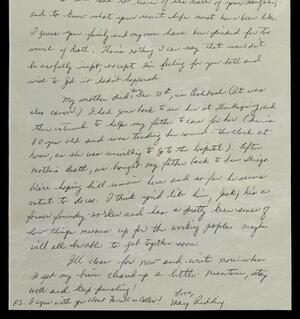 to learn of the death of your daughter,
and to know what your recent life must have been like.
I guess your family and my own have been forced for too
much of death. There's nothing I can say that wouldn't
be carefully inept, except I'm feeling for you both and
wish to God it hadn't happened.
My mother died Nov 11th, in Oakland (It was
also cancer) I had gone back to see her at Thanksgiving and
then returned to help my father to care for her (he is
80 years old and was tending her round-the-clock at
home, as she was unwilling to go to the hospital). After
mother's death, we brought my father back to San Diego.
We're hoping he'll remain here and so far he seems
content to do so. I think you'd like him, Jack; he's a
former foundry-worker and has a pretty keen sense of
how things measure up for the working people. Maybe
we'll all be able to get together soon.
I'll close for now and write more when
I get my brain cleared up a little. Meantime, stay
well and keep punching!
Love,
Mary Redding
P.S. I agree with you about